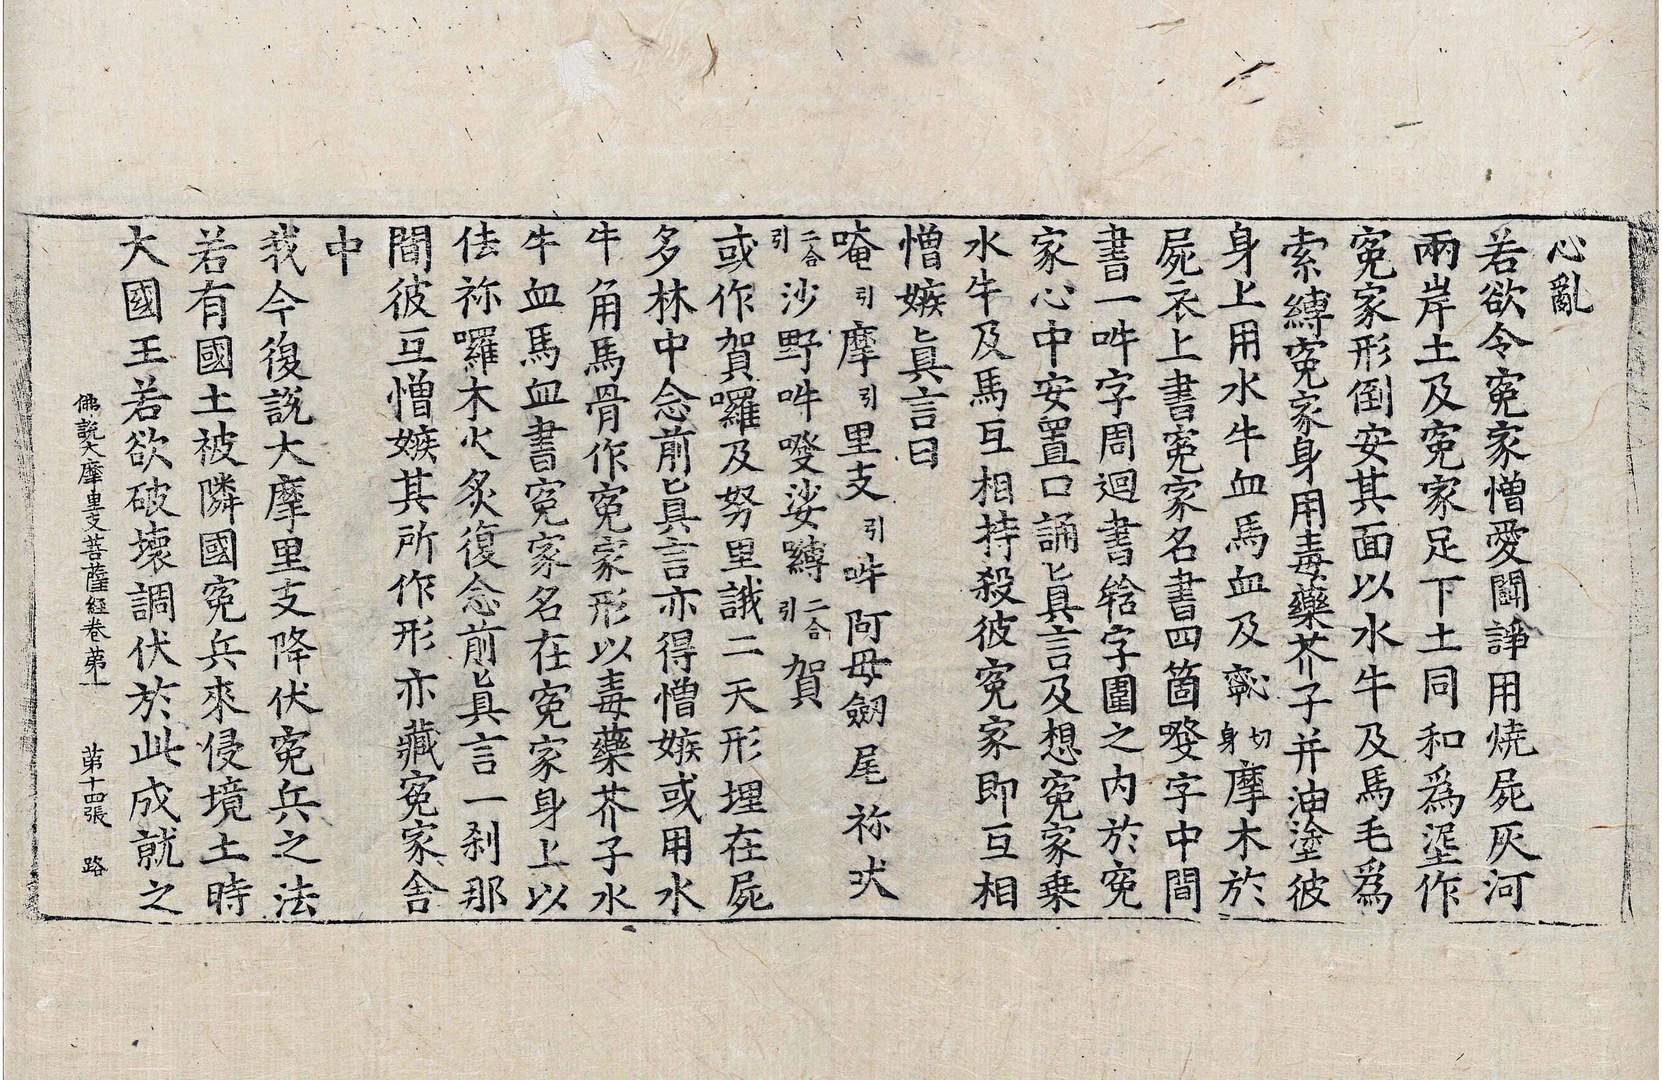 心亂
若欲令寃家憎愛鬪諍用燒屍灰河
兩岸土及寃家足下土同和爲埿作
寃家形倒安其面以水牛及馬毛爲
索縛寃家身用毒藥芥子并油塗彼
身上用水牛血馬血及 切身 摩木於
屍衣上書寃家名書四箇𠿒字中間
書一吽字周迴書䤈字圍之内於寃
家心中安置口誦眞言及想寃家乗
水牛及馬互相持殺彼寃家即互相
憎嫉眞言曰
唵引摩引里支引吽阿毋劒尾祢吠
二合引沙野吽𠿒娑嚩二合引賀
或作賀囉及努里誐二天形埋在屍
多林中念前眞言亦得憎嫉或用水
牛角馬骨作寃家形以毒藥芥子水
牛血馬血書寃家名在寃家身上以
佉祢囉木火炙復念前眞言一刹那
間彼互憎嫉其所作形亦藏寃家舎
中
我今復説大摩里支降伏寃兵之法
若有國土被隣國寃兵來侵境土時
大國王若欲破壞調伏於此成就之
佛説大摩里支菩薩經卷第一 第十四張 路